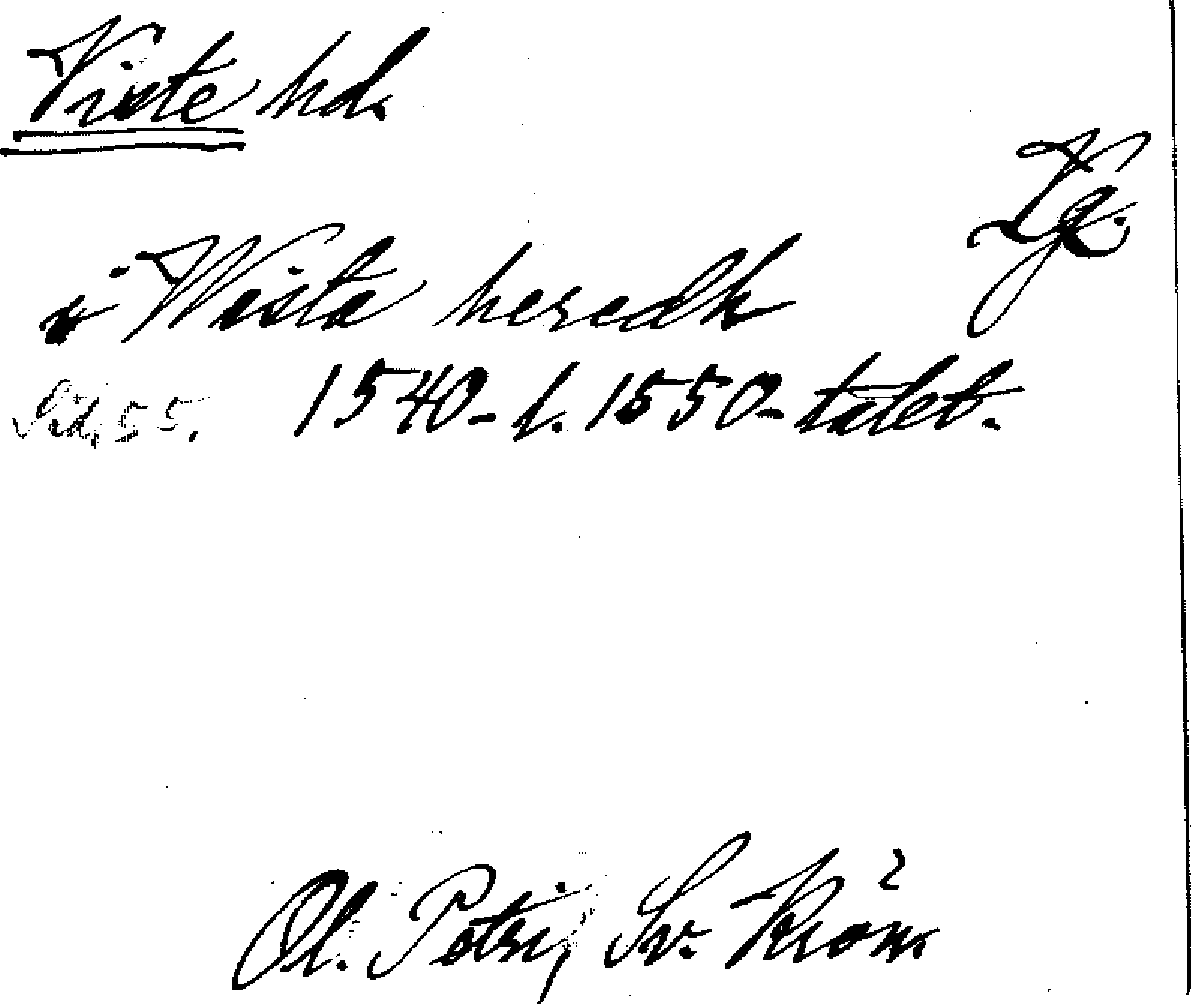 Viste hd.
Vg.
i Wista heredh
Sid. 55. 1540- f. 1550-talet.
Ol. Petri, Sv. Krön.²